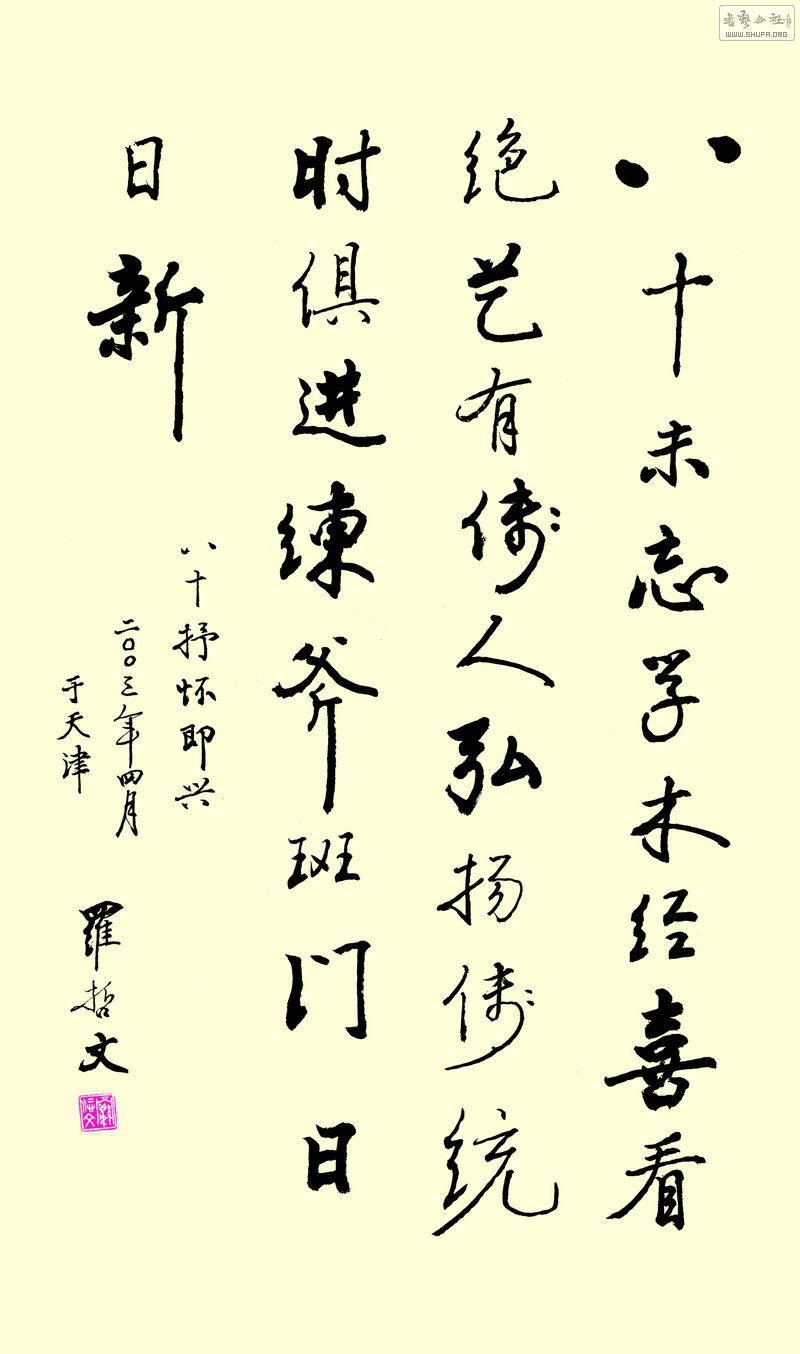 八十未忘学木经喜看
绝艺有传人弘扬传统
时俱进练斧班门日
日新
八十抒怀即兴
二〇〇三年四月
于天津
羅哲文
书艺公社
WWW.SHUFA.ORG